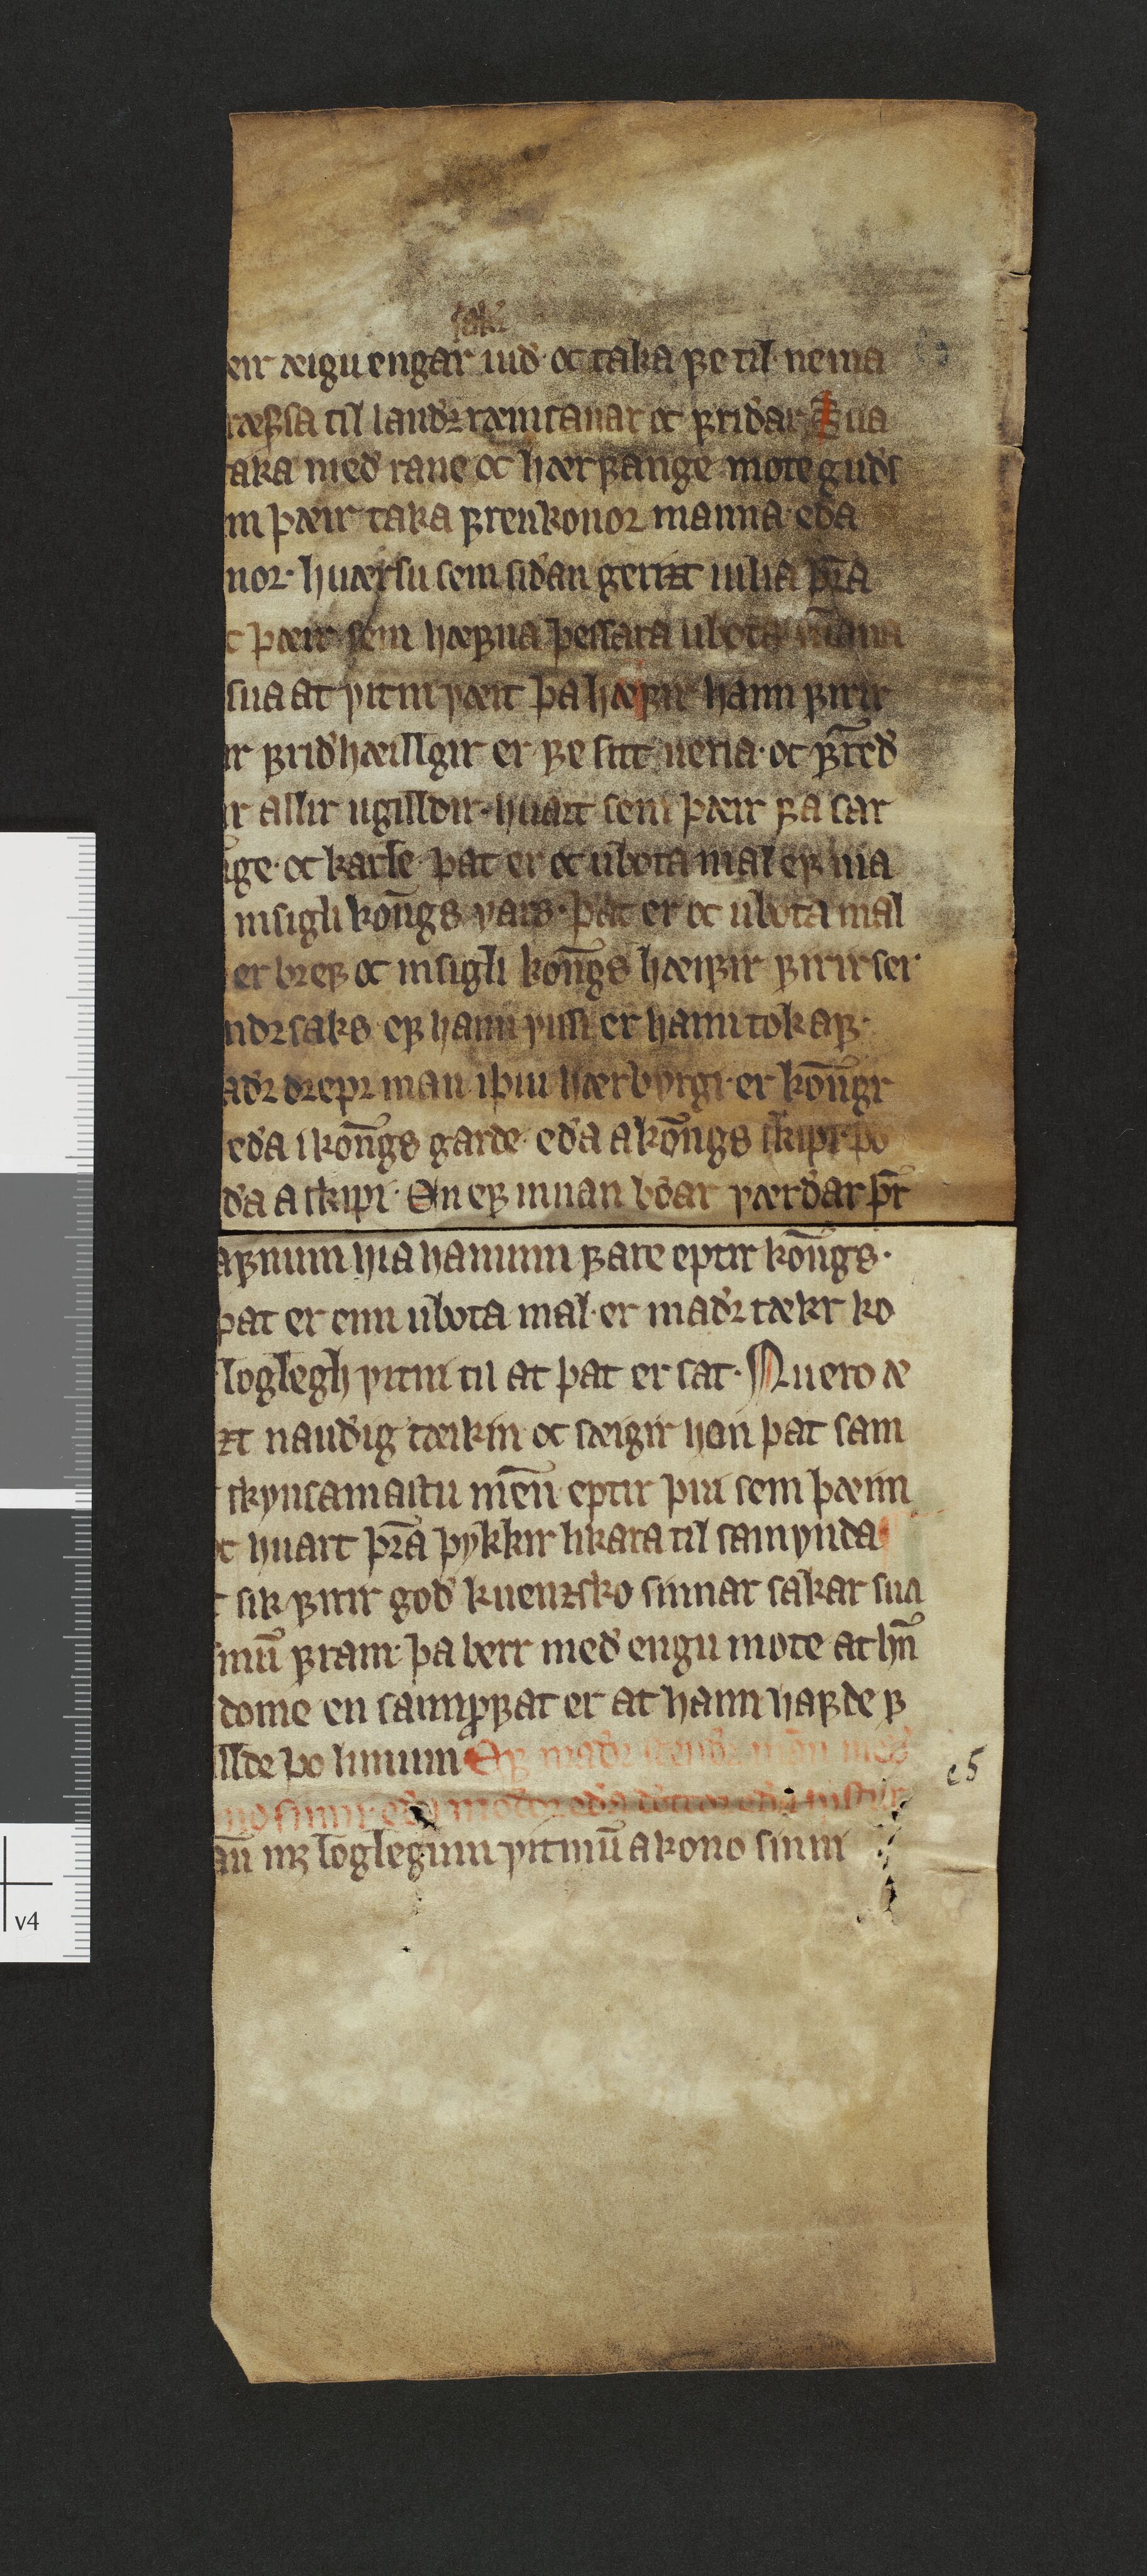 sakir
eir æigu engar uid· oc taka fe til· nema
ræfsa til landꝛ ræinsanar oc fridar Sua
aka med rane oc hærfange mote guds
m þæir taka frenkonoꝛ manna· eda
nor· huærsu sem sidan gerizt uilia þr̄a
c þæir sem hæfna þessara ubota m̄anna
sua at vitni væit þa hæfir hann firir
ir fridhæillgir er fe sitt ueria· oc fr̄ed
ir allir ugilldir· huart sem þæir fa sar
ūge· oc karle· þat er oc ubota mal ef ma
insigli kōngs vars· þat er oc ubota mal
er bref oc insigli kōngs hæifir firir ser
ndꝛ saks ef hann vissi er hann tok af·
adꝛ drepꝛ man iþui hærbyrgi· er kōngr
eda i kōngs garde· eda a kōngs skipi· þo
da a skipi· En ef innan bdar værdar þr̄
afnum hia hanum fare eptir kōngs·
þat er enn ubota mal· er madꝛ tækr ko
loglegh vitni til at þat er sat· Nu ero æ
zt naudig tæikin oc sæigir hon þat sam
skynsamastu mēn eptir þui sem þæim
oc huart þr̄a þykkir likara til sannynda
sik firir god kuenzsko sinnar sakar sua
inū fram· þa berr med engu mote at hn̄
dome en sannprofat er at hann hafde f
illde þo linum Ef madꝛ stendꝛ man med
no sinni eda modoꝛ eda dottoꝛ eda systur
c5
an mz loglegum vitnū a kono sinni